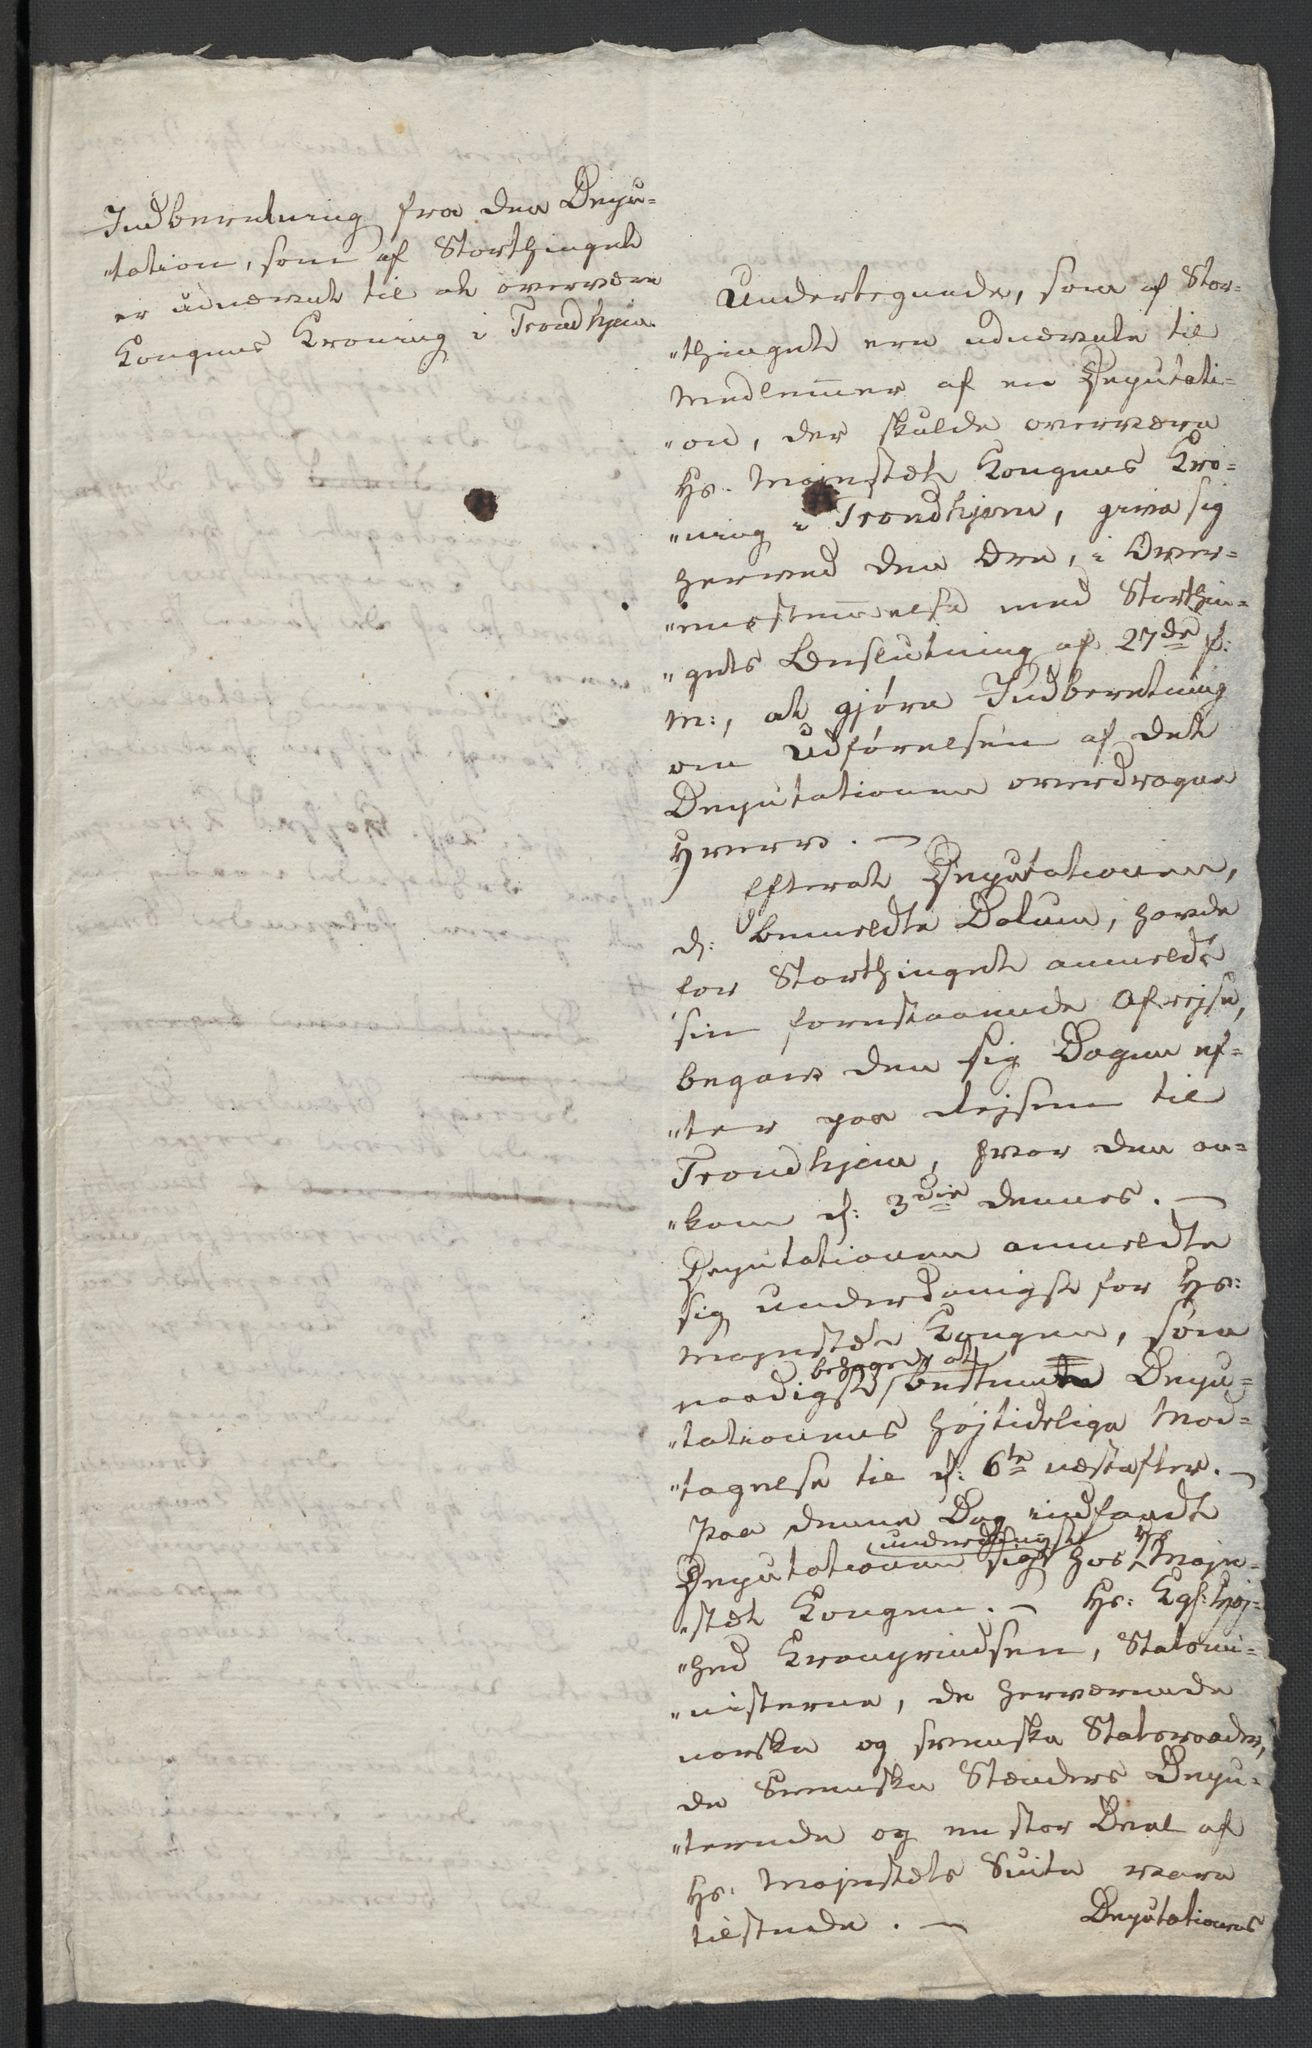 Indberetning fra den Depu-
"tation, som af Storthinget
er udnævnt til at overvære
Kongens Kroning i Trondhjem.
Undertegnede, som af Stor-
"thinget ere udnævnte til
Medlemmer af en Deputati-
"on, der skulde overvære
Hs. Majestæt Kongens Kro-
"ning i Trondhjem, give sig
herved den Ære, i Over-
"eensstemmelse med Storthin-
"gets Beslutning af 27de f:
M:, at gjøre Indberetning
om Udførelsen af det
Deputationen overdragne
Hverv. —
Efterat Deputationen,
d: bemeldte Datum, havde
for Storthinget anmeldt
sin forestaaende Afrejse,
begav den sig Dagen ef-
"ter paa Rejsen til
Trondhjem, hvor den an-
"kom d: 3die dennes. —
Deputationen anmeldte
sig underdanigst for Hs:
Majestæt Kongen, som
behagede at
naadigst bestemte Depu-
"tationens højtidelige Mod-
"tagelse til d: 6te næstefter. —
Paa denne Dag indfandt
underdanigst
Deputationen sig hos Hs Maje-
"stæt Kongen. — Hs: Kgl: Høj-
"hed Kronprindsen, Statsmi-
"nisterne, de herværende
norske og svenske Statsraader,
de Svenske Stænders Depu-
"terede og en stor Deel af
Hs. Majestæts Suite vare
tilstede. —
Deputationens